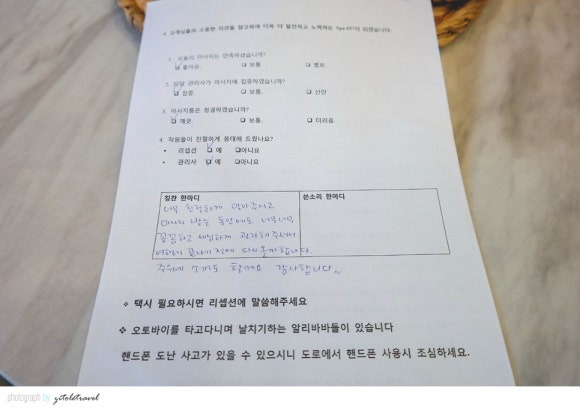 * 고객님들의 소중한 의견을 참고하여 더욱 더 발전하고 노력하는 Spa 가 되겠습니다.
1. 오늘의 마사지는 만족하셨습니까?
좋아요. 보통 별로
2. 담당 관리사가 마사지에 집중하였습니까?
집중. 보통. 산만
3. 마사지룸은 청결하였습니까?
깨끗. 보통. 더러움.
4. 직원들이 친절하게 응대해 드렸나요?
• 리셉션 예 아니요
• 관리사 예 아니요
칭찬 한마디 쓴소리 한마디
너무 친절하게 맞아주시고
마사지 받는 동안에도 너무너무
꼼꼼하고 세심하게 관리해주셔서
여행이 끝나기 전에 다시 올까합니다.
추위에 감사합니다~
❖ 택시 필요하시면 리셉션에 말씀해주세요
❖ 오토바이를 타고다니며 날치기하는 알리바바들이 있습니다
핸드폰 도난 사고가 있을 수 있으시니 도로에서 핸드폰 사용시 조심하세요.
photograph by yitoletravel